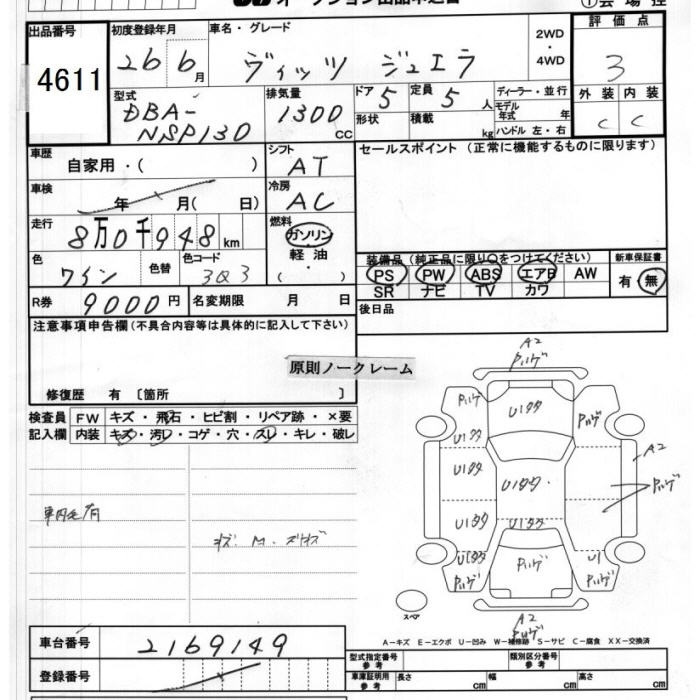 出品番号 初度登録年月 車名・グレード 2WD・4WD 評価点
4611 26 6月 ヴィッツ ジュエラ 3
外装 内装
C C
型式 DBA-NSP130 排気量 1300 CC ドア 5 定員 5人 ディーラー・並行
形状 積載 kg モデル年式 年
ハンドル 左・右
車歴 自家用・( ) シフト AT セールスポイント (正常に機能するものに限ります)
車検 年 月( 日) 冷房 AC
走行 8万0千948km 燃料 ガソリン 軽油 ・( )
色 ワイン 色替 色コード 3Q3
装備品 (純正品に限り○をつけてください) 新車保証書
PS PW ABS エアB AW 有 無
SR ナビ TV カワ
R券 9000円 名変期限 月 日 後日品
注意事項申告欄 (不具合内容等は具体的に記入して下さい)
原則ノークレーム
修復歴 有 〔箇所 〕
検査員 FW キズ・飛石・ヒビ割・リペア跡・×要
記入欄 内装 キズ・汚レ・コゲ・穴・スレ・キレ・破レ
車内毛有
A2
A2
U1
A2
スペア
A−キズ E−エクボ U−凹み W−補修跡 S−サビ C−腐食 XX−交換済
車台番号 2169149
登録番号
型式指定番号 参考 類別区分番号 参考
車庫証明用 参考 長さ cm 幅 cm 高さ cm